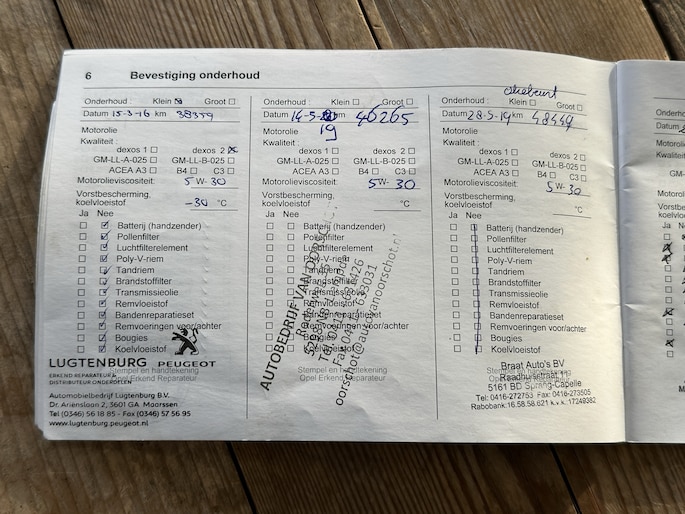 6 Bevestiging onderhoud
Onderhoud : Klein Groot
Datum 15-3-16 km 38359
Motorolie
Kwaliteit :
dexos 1 dexos 2
GM-LL-A-025 GM-LL-B-025
ACEA A3 B4 C3
Motorolieviscositeit: 5W-30
Vorstbescherming,
koelvloeistof -30 °C
Ja Nee
Batterij (handzender)
Pollenfilter
Luchtfilterelement
Poly-V-riem
Tandriem
Brandstoffilter
Transmissieolie
Remvloeistof
Bandenreparatieset
Remvoeringen voor/achter
Bougies
Koelvloeistof
Stempel en handtekening
Opel Erkend Reparateur
LUGTENBURG PEUGEOT
ERKEND REPARATEUR &
DISTRIBUTEUR ONDERDELEN
Automobielbedrijf Lugtenburg B.V.
Dr. Ariënslaan 2, 3601 GA Maarssen
Tel (0346) 56 18 85 - Fax (0346) 57 56 95
www.lugtenburg.peugeot.nl
Onderhoud : Klein Groot
Datum 14-5- km 46265
19
Motorolie
Kwaliteit :
dexos 1 dexos 2
GM-LL-A-025 GM-LL-B-025
ACEA A3 B4 C3
Motorolieviscositeit: 5W-30
Vorstbescherming,
koelvloeistof °C
Ja Nee
Batterij (handzender)
Pollenfilter
Luchtfilterelement
Poly-V-riem
Tandriem
Brandstoffilter
Transmissieolie
Remvloeistof
Bandenreparatieset
Remvoeringen voor/achter
Bougies
Koelvloeistof
Stempel en handtekening
Opel Erkend Reparateur
AUTOBEDRIJF VAN OORSCHOT
oliebeurt
Onderhoud : Klein Groot
Datum 28-5-19 km 48449
Motorolie
Kwaliteit :
dexos 1 dexos 2
GM-LL-A-025 GM-LL-B-025
ACEA A3 B4 C3
Motorolieviscositeit: 5W-30
Vorstbescherming,
koelvloeistof °C
Ja Nee
Batterij (handzender)
Pollenfilter
Luchtfilterelement
Poly-V-riem
Tandriem
Brandstoffilter
Transmissieolie
Remvloeistof
Bandenreparatieset
Remvoeringen voor/achter
Bougies
Koelvloeistof
Stempel en handtekening
Opel Erkend Reparateur
Braat Auto's BV
Raadhuisstraat
5161 BD Sprang-Capelle
Tel: 0416-272753 Fax: 0416-273505
Rabobank: 16.58.58.621 k.v.k. 17249382